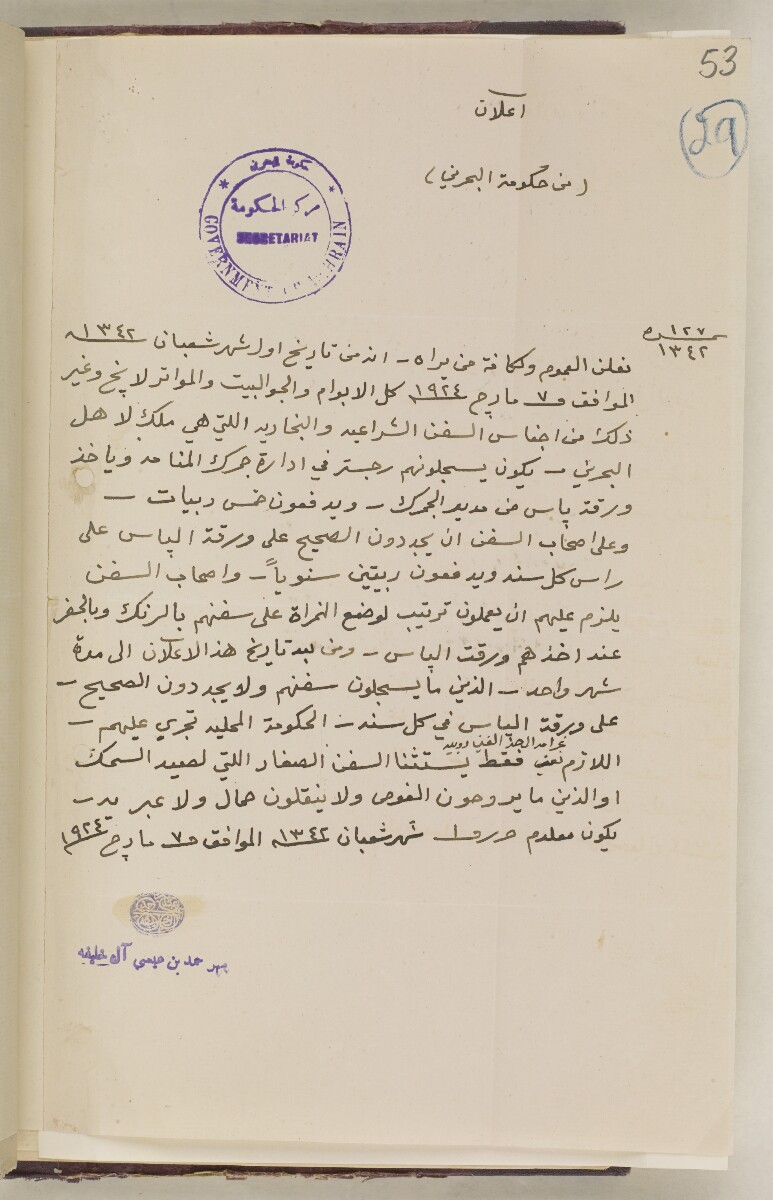 53
29
اعلان
(من حكومة البحرين)
حكومة البحرين
مركز الحكومة
SECRETARIAT
GOVERNMENT OF BAHRAIN
١٢٧
١٣٤٢
نعلن العموم ولكافة من يراه - انه من تاريخ اول شهر شعبان ١٣٤٢
الموافق ٧ مارچ ١٩٢٤ كل الابوام والجوالبيت والمواتر لانچ وغير
ذلك من اجناس السفن الشراعيه والبخاريه اللتي هي ملك لاهل
البحرين - يكون يسجلونهم رجستر في ادارة جمرك المنامه وياخذ
ورقة پاس من مدير الجمرك - ويدفعون خمس ربيات -
وعلى اصحاب السفن ان يجددون الصحيح على ورقة الپاس على
راس كل سنه ويدفعون ربيتين سنوياً - واصحاب السفن
يلزم عليهم ان يعملون ترتيب لوضع النمراة على سفنهم بالرنك وبالحفر
عند اخذهم ورقت الپاس - ومن بعد تاريخ هذا الاعلان الى مدة
شهر واحد - الذين ما يسجلون سفنهم ولا يجددون الصحيح -
على ورقة الپاس في كل سنه - الحكومة المحليه تجري عليهم -
اللازم فقط يستثنا السفن الصغار اللتي لصيد السمك
او الذين ما يروحون الغوص ولا ينقلون حمال ولا عبريه -
يكون معلوم حرر ١ شهر شعبان ١٣٤٢ الموافق ٧ مارچ ١٩٢٤
حمد بن عيسى آل خليفه